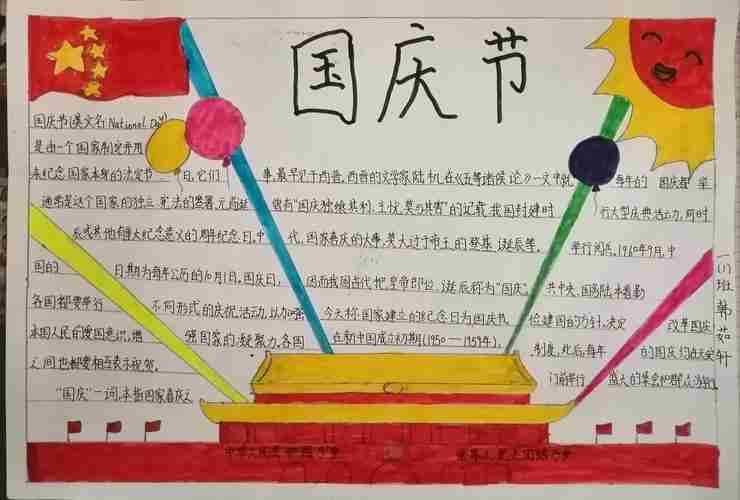 国庆节
国庆节(英文名:National Day)
是由一个国家制定并用
来纪念国家本身的法定节 日,它们
通常是这个国家的独立、宪法的签署、元首诞
辰或其他有重大纪念意义的周年纪念日,中
国的 日期为每年公历的10月1日。国庆日,
各国都要举行 不同形式的庆祝活动,以加强
本国人民的爱国意识,增 强国家的凝聚力。各国
之间也都要相互表示祝贺。
“国庆”一词,本指国家喜庆之
事,最早见于西晋。西晋的文学家陆机在《五等诸侯论》一文中就
曾有“国庆独飨其利,主忧莫与其害”的记载、我国封建时
代、国家喜庆的大事,莫大过于帝王的登基、诞辰等。
因而我国古代把皇帝即位、诞辰称为“国庆”。
今天称国家建立的纪念日为国庆节
在新中国成立初期(1950—1959年),
每年的 国庆都 举
行大型庆典活动,同时
举行阅兵。1960年9月,中
共中央、国务院本着勤
俭建国的方针,决定 改革国庆
制度,此后,每年 的国庆均在天安
门前举行 盛大的集会和群众游行
一(1)班 韩茹轩
中华人民共和国万岁
世界人民大团结万岁